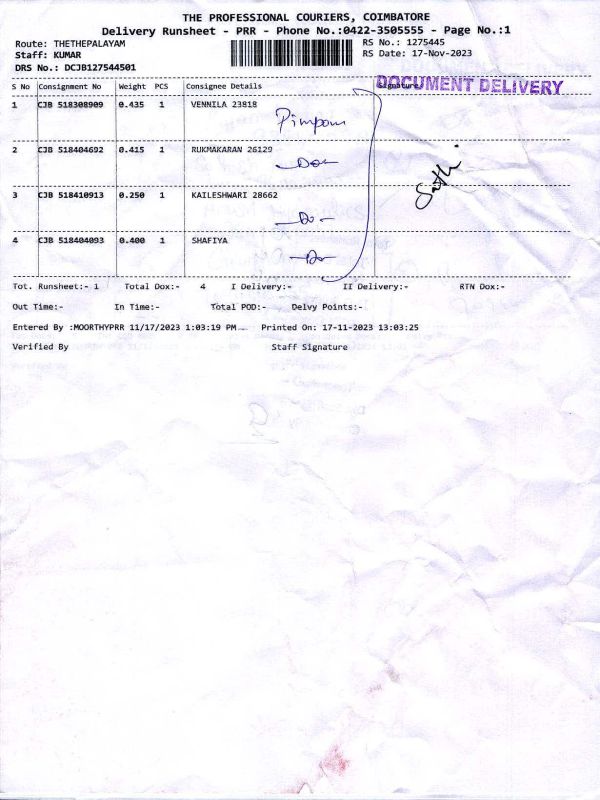 THE PROFESSIONAL COURIERS, COIMBATORE
Delivery Runsheet - PRR - Phone No.:0422-3505555 - Page No.:1
Route: THETHEPALAYAM RS No.: 1275445
Staff: KUMAR RS Date: 17-Nov-2023
DRS No.: DCJB127544501
DOCUMENT DELIVERY
S No Consignment No Weight PCS Consignee Details Signature
1 CJB 518308909 0.435 1 VENNILA 23818
2 CJB 518404692 0.415 1 RUKMAKARAN 26129
3 CJB 518410913 0.250 1 KAILESHWARI 28662
4 CJB 518404093 0.400 1 SHAFIYA
Tot. Runsheet:- 1 Total Dox:- 4 I Delivery:- II Delivery:- RTN Dox:-
Out Time:- In Time:- Total POD:- Delvy Points:-
Entered By :MOORTHYPRR 11/17/2023 1:03:19 PM Printed On: 17-11-2023 13:03:25
Verified By Staff Signature